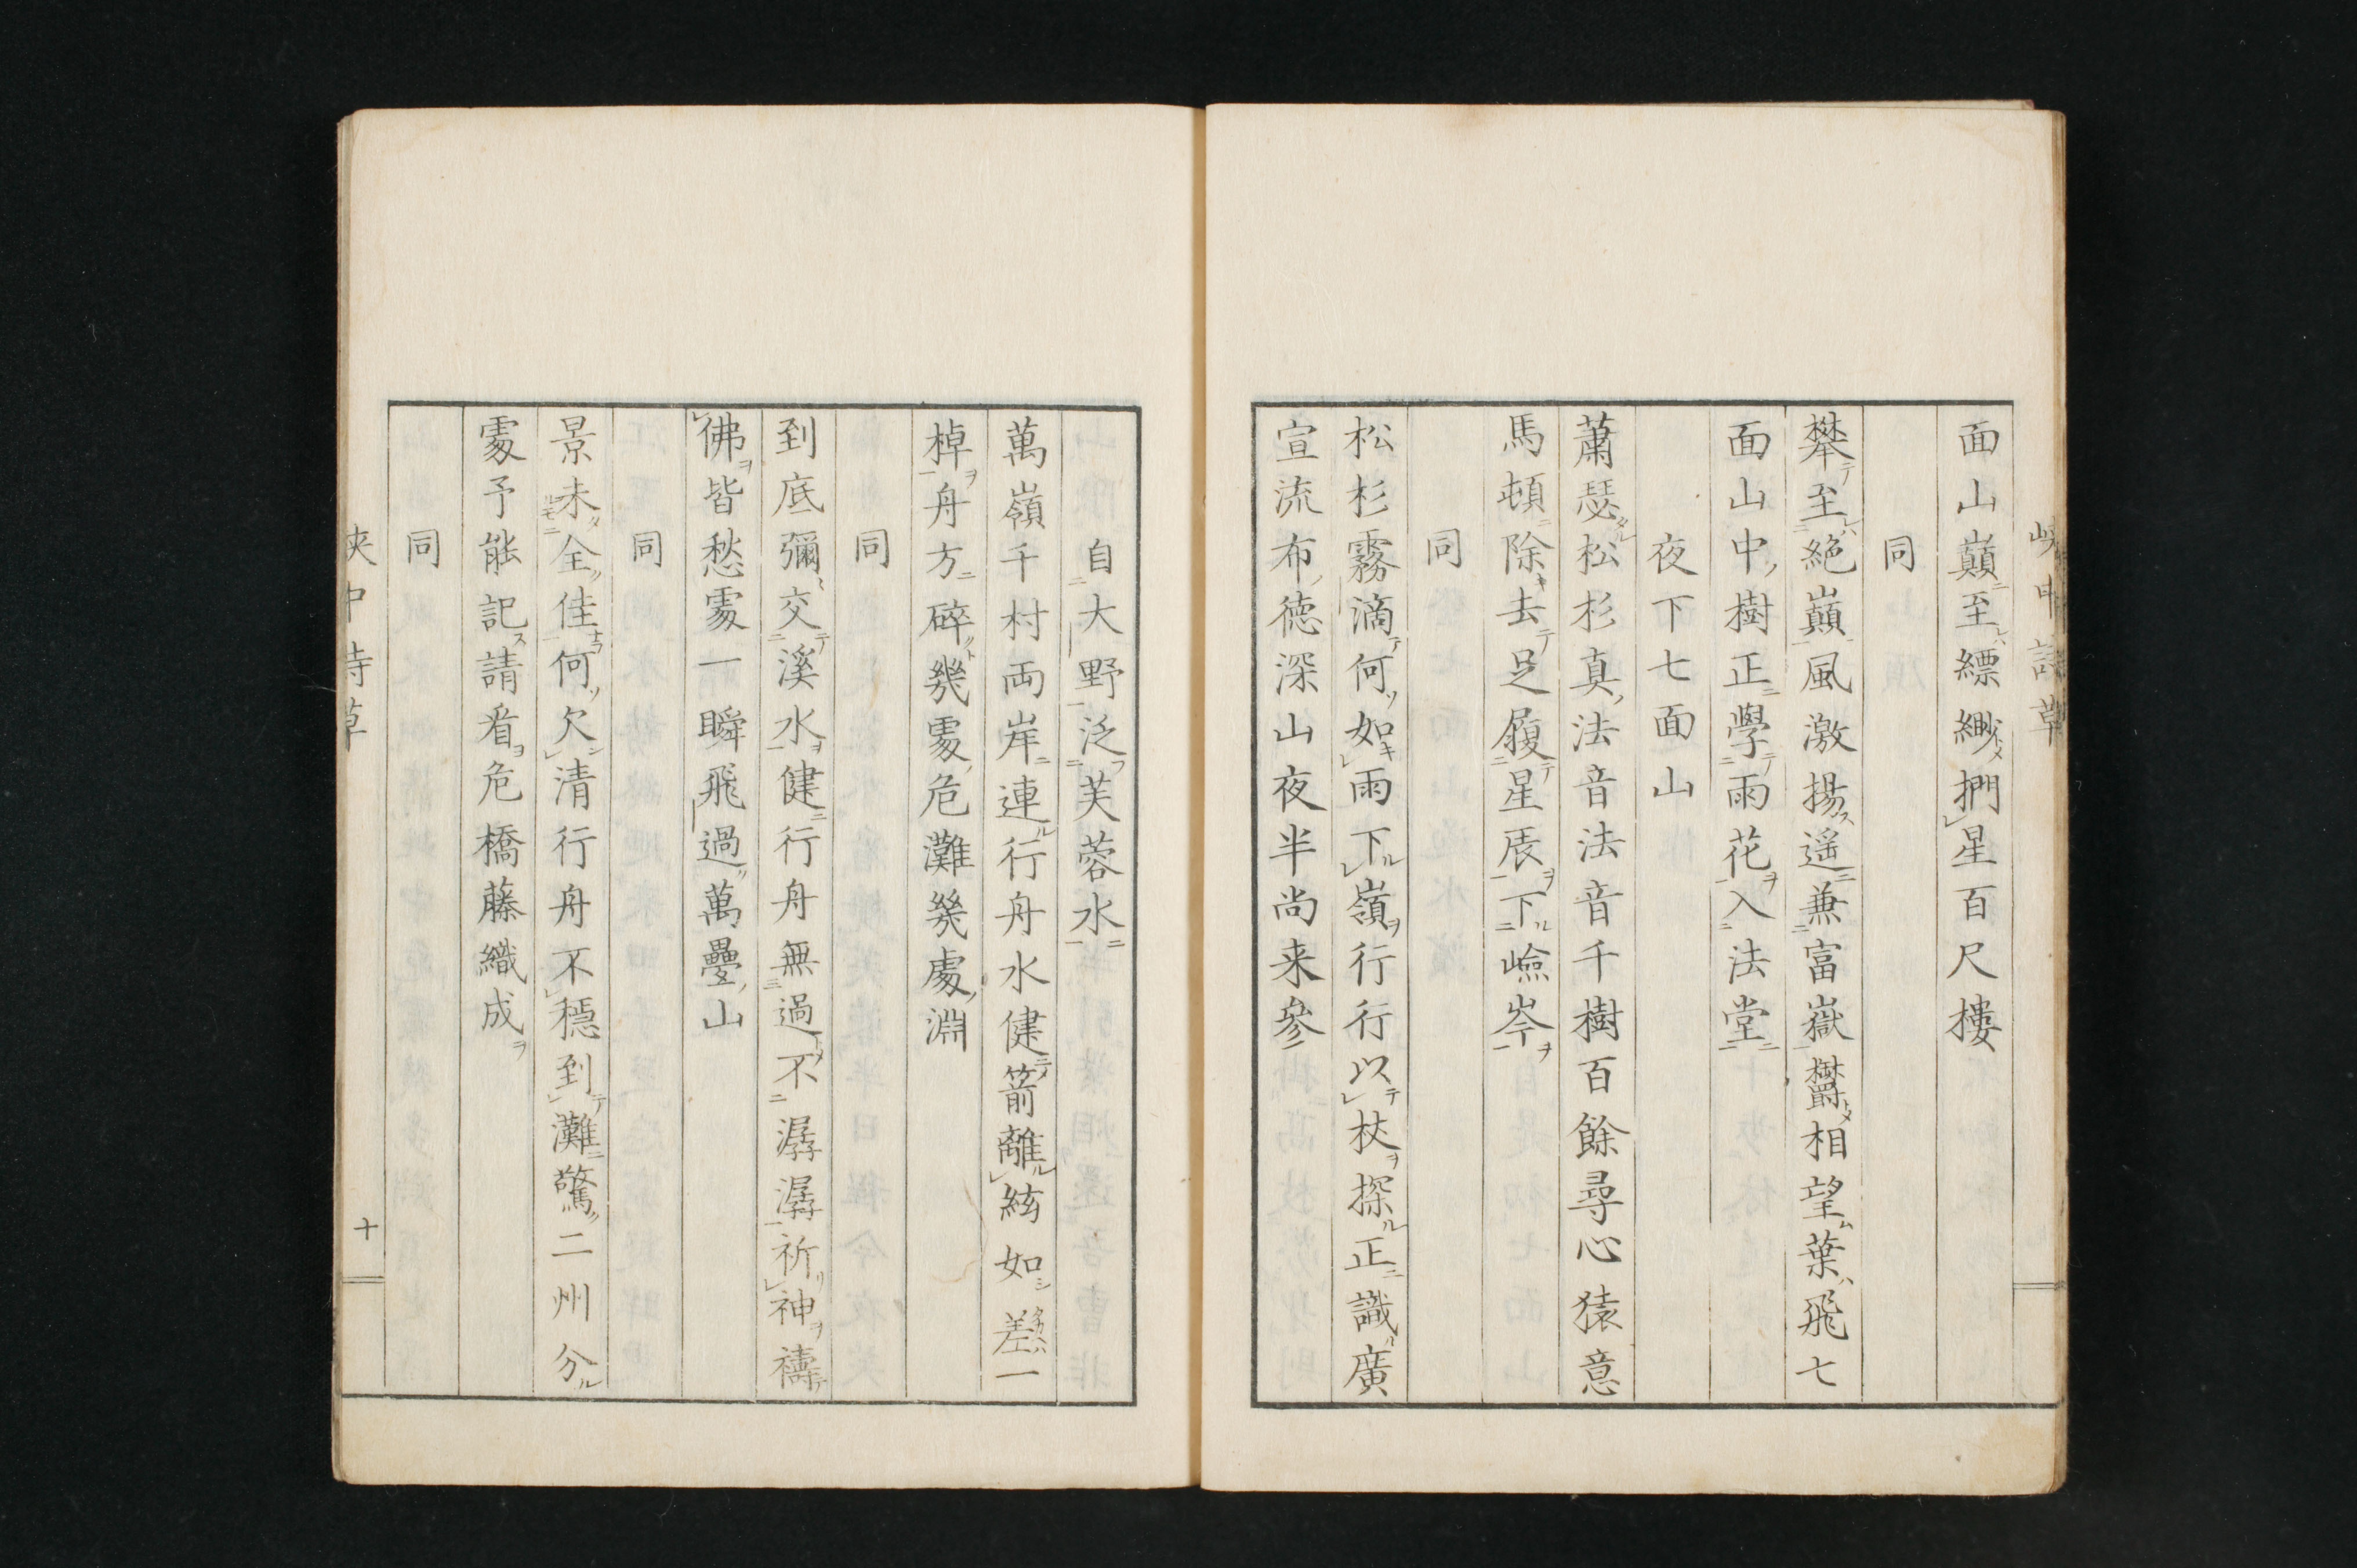 峽中詩草
面山巔至縹緲捫星百尺樓
同
攀至絕巔風激揚遥兼富嶽欝相望葉飛七
面山中樹正學雨花入法堂
夜下七面山
蕭瑟松杉真法音法音千樹百餘尋心猿意
馬頓除去足履星辰下嶮岑
同
松杉霧滴何如雨下嶺行行以杖探正識廣
宣流布德深山夜半尚来參
自大野泛芙蓉水
萬嶺千村両岸連行舟水健箭離絃如差一
棹舟方碎幾處危灘幾處淵
同
到底彌交溪水健行舟無過不潺潺祈神禱
佛皆愁處一瞬飛過萬疊山
同
景未全佳何欠清行舟不穩到灘驚二州分
處予能記請看危橋藤織成
同
峽中詩草
十